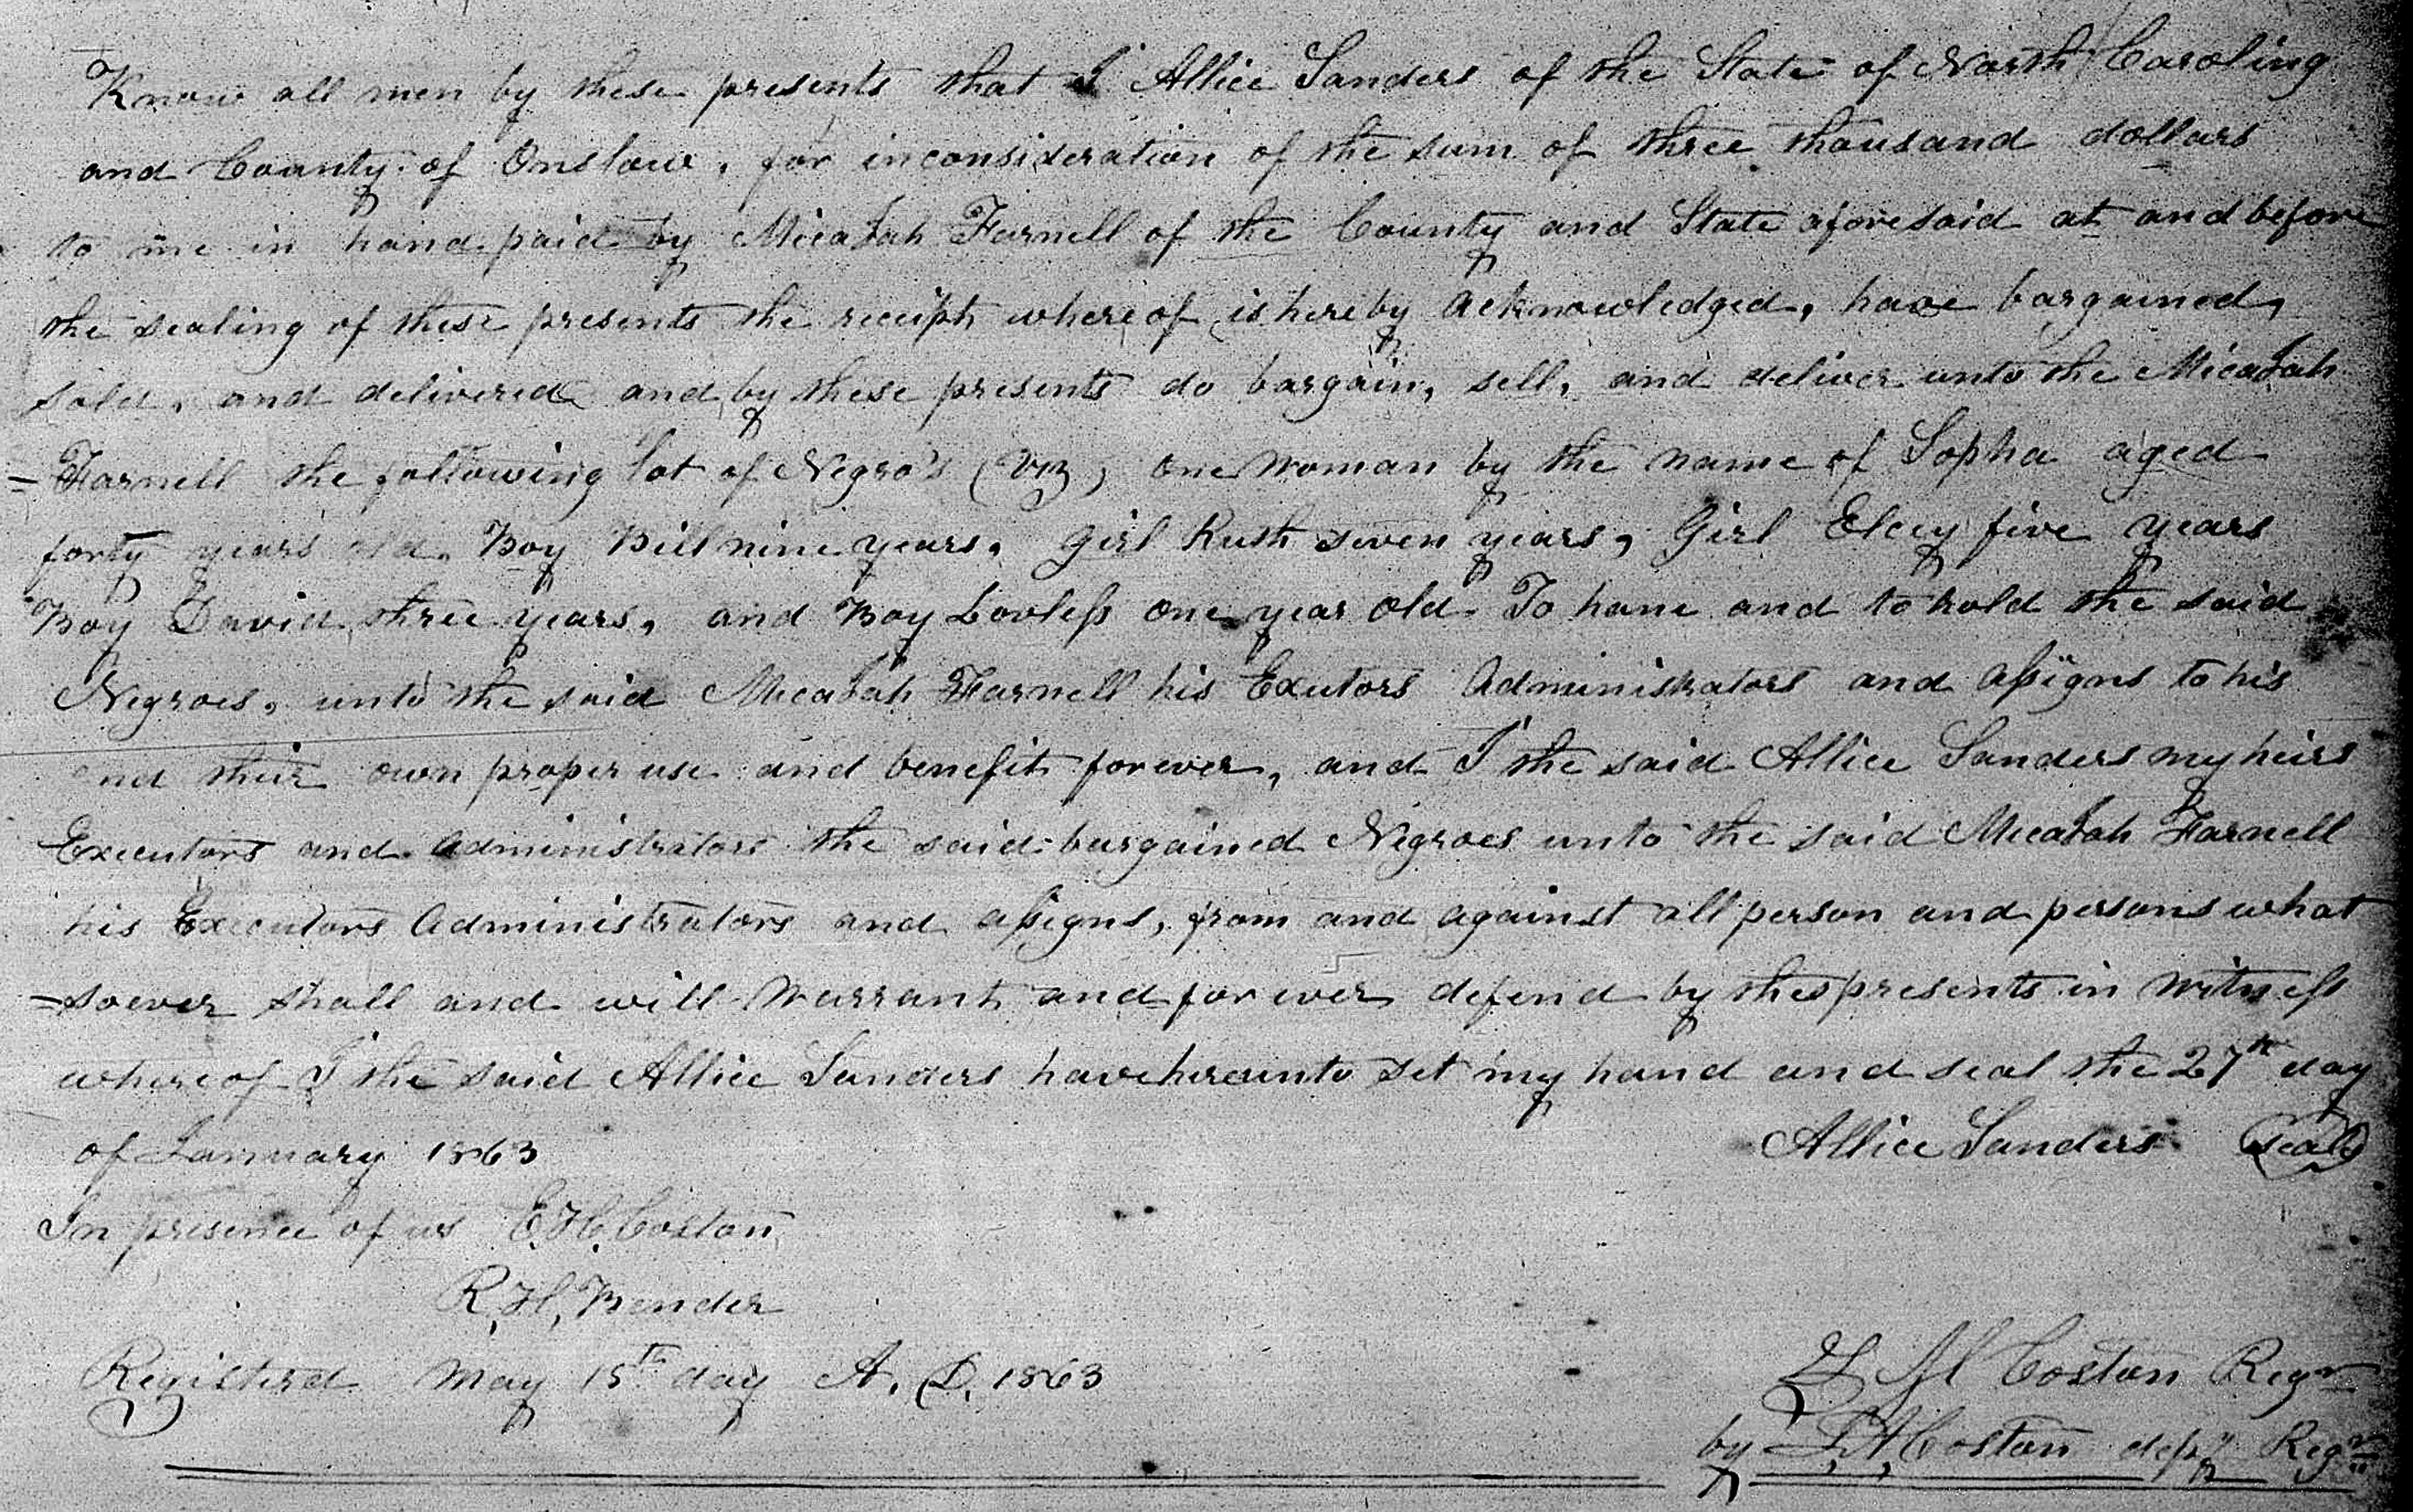 Know all men by these presents that I Allice Sanders of the State of North Carolina
and County of Onslow, for inconsideration of the sum of three thousand dollars
to me in hand paid by Micajah Farnell of the County and State aforesaid at and before
the sealing of these presents the receipt whereof is hereby acknowledged, have bargained,
sold, and delivered and by these presents do bargain, sell, and deliver unto the Micajah
=Farnell the following lot of Negro's (viz) one woman by the name of Sopha aged
forty years old, Boy Bill nine years, girl Ruth seven years, Girl Elcey five years
Boy David three years, and Boy Lovless one year old. To have and to hold the said
Negroes, unto the said Micajah Farnell his Exutors Administrators and assigns to his
and their own proper use and benefit forever, and I the said Allice Sanders my heirs
Executors and Administrators the said bargained Negroes unto the said Micajah Farnell
his Executors Administrators and assigns, from and against all person and persons what
=soever shall and will Warrant and forever defend by thes presents in witness
whereof I the said Allice Sanders have hereunto set my hand and seal the 27th day
of January 1863
Allice Sanders (seal)
In presence of us E. H. Coston
R. H. Bender
Registerd May 15th day A. D. 1863
Coston Regr
by Coston depy Regr